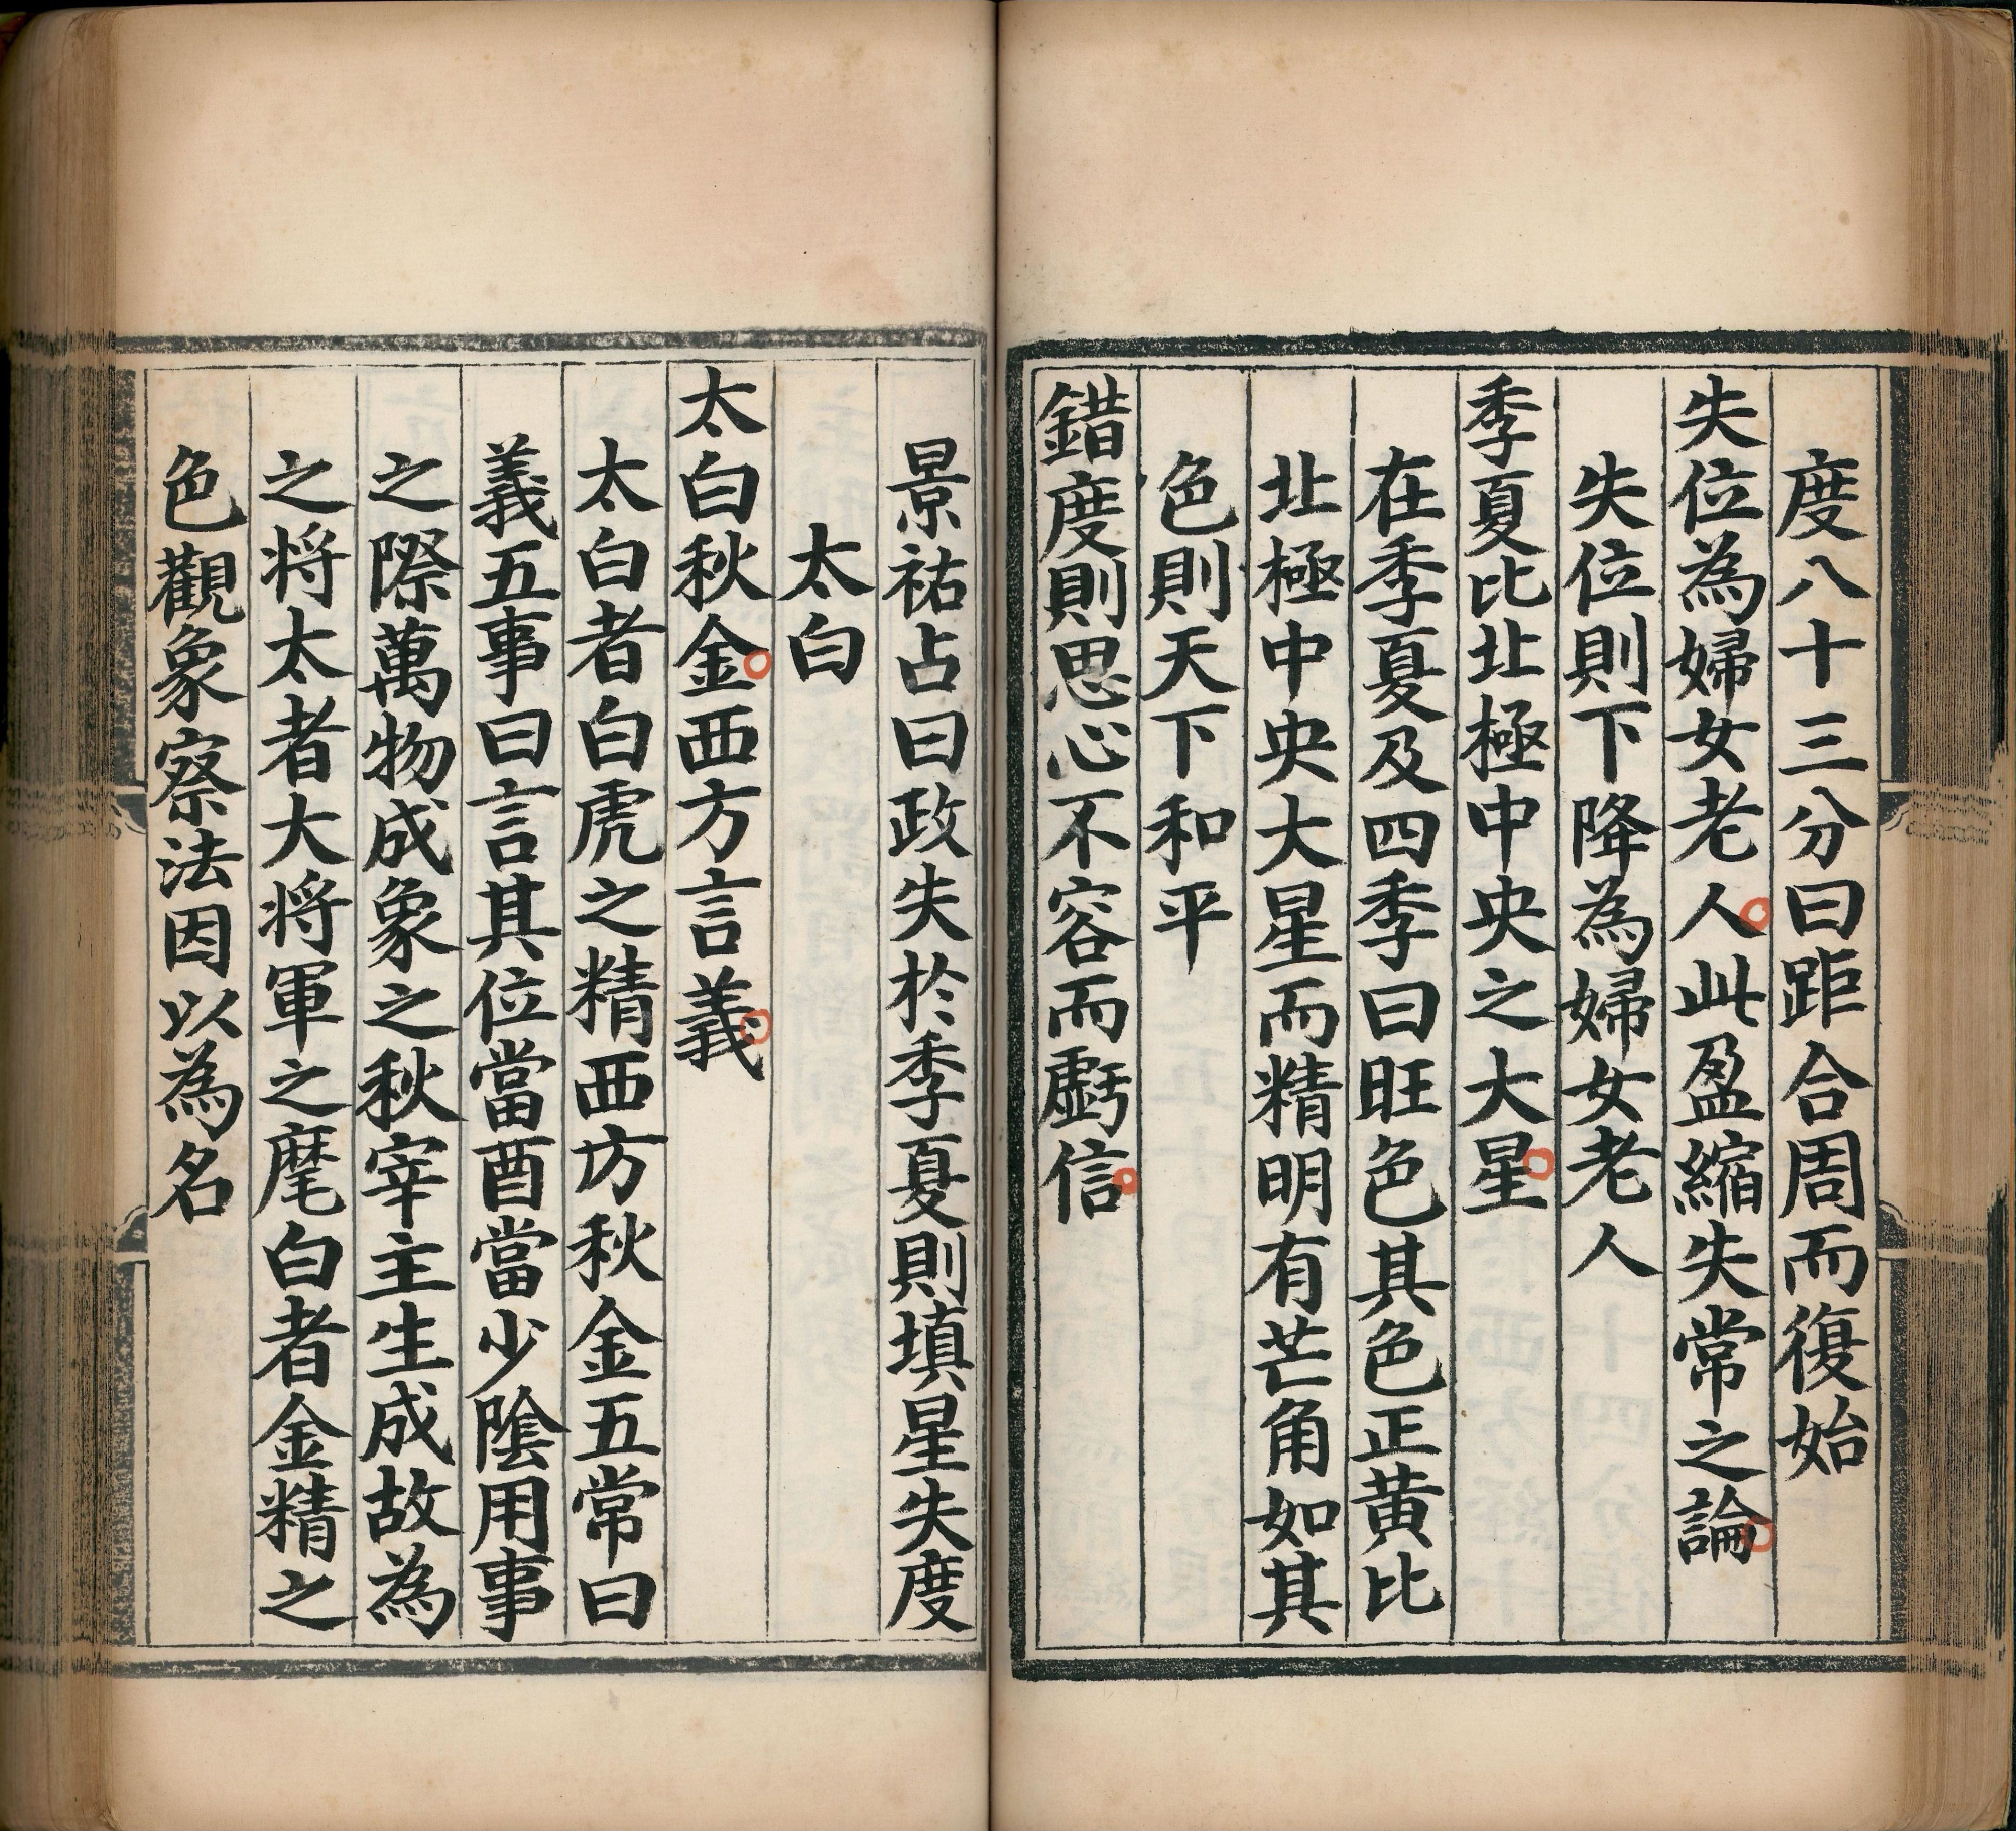 度八十三分曰距合周而復始
失位為婦女老人此盈縮失常之論
失位則下降為婦女老人
季夏比北極中央之大星
在季夏及四季曰旺色其色正黄比
北極中央大星而精明有芒角如其
色則天下和平
錯度則思心不容而虧信
景祐占曰政失於季夏則填星失度
太白
太白秋金西方言義
太白者白虎之精西方秋金五常曰
義五事曰言其位當酉當少隂用事
之際萬物成象之秋宰主生成故為
之将太者大将軍之麾白者金精之
色觀象察法因以為名